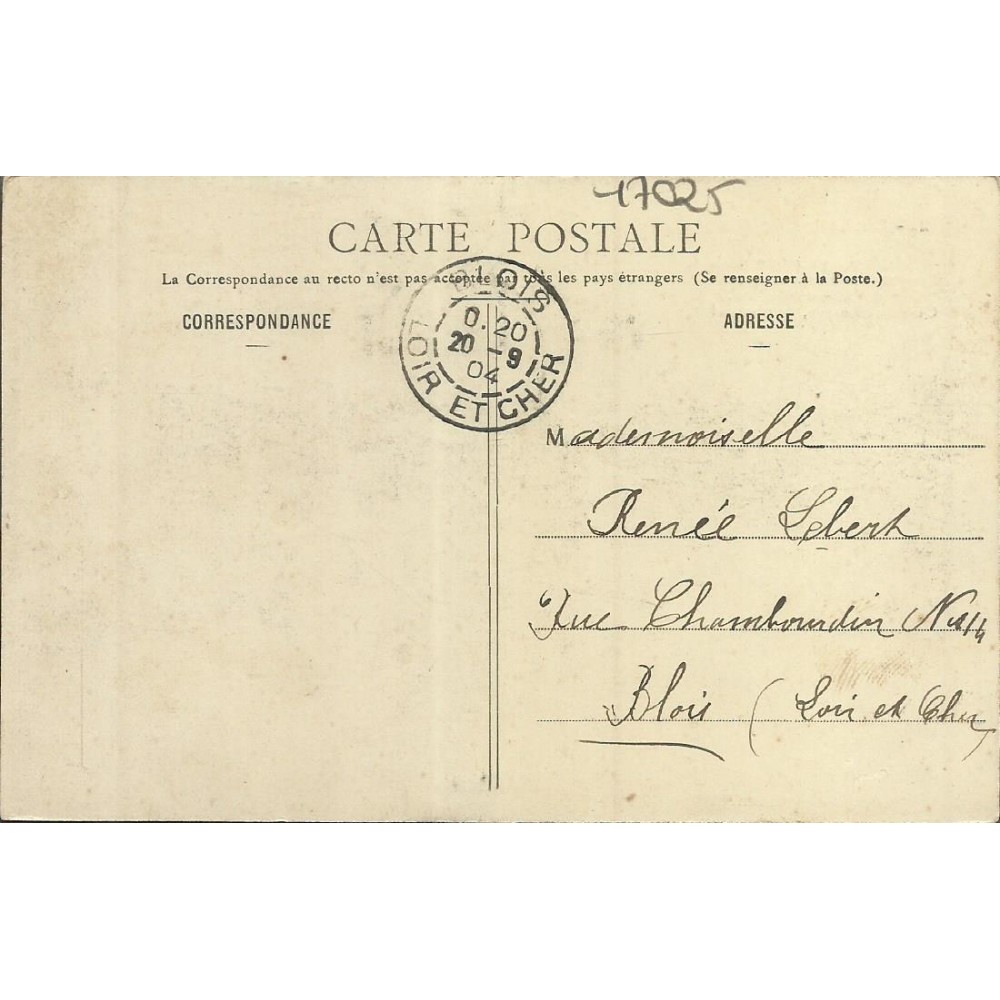 17025
CARTE POSTALE
La Correspondance au recto n'est pas acceptée par tous les pays étrangers (Se renseigner à la Poste.)
CORRESPONDANCE
ADRESSE
BLOIS
0.20
20 - 9
04
LOIR ET CHER
Mademoiselle
Renée Lebert
Rue Chambourdin
Blois (Loir et Cher)